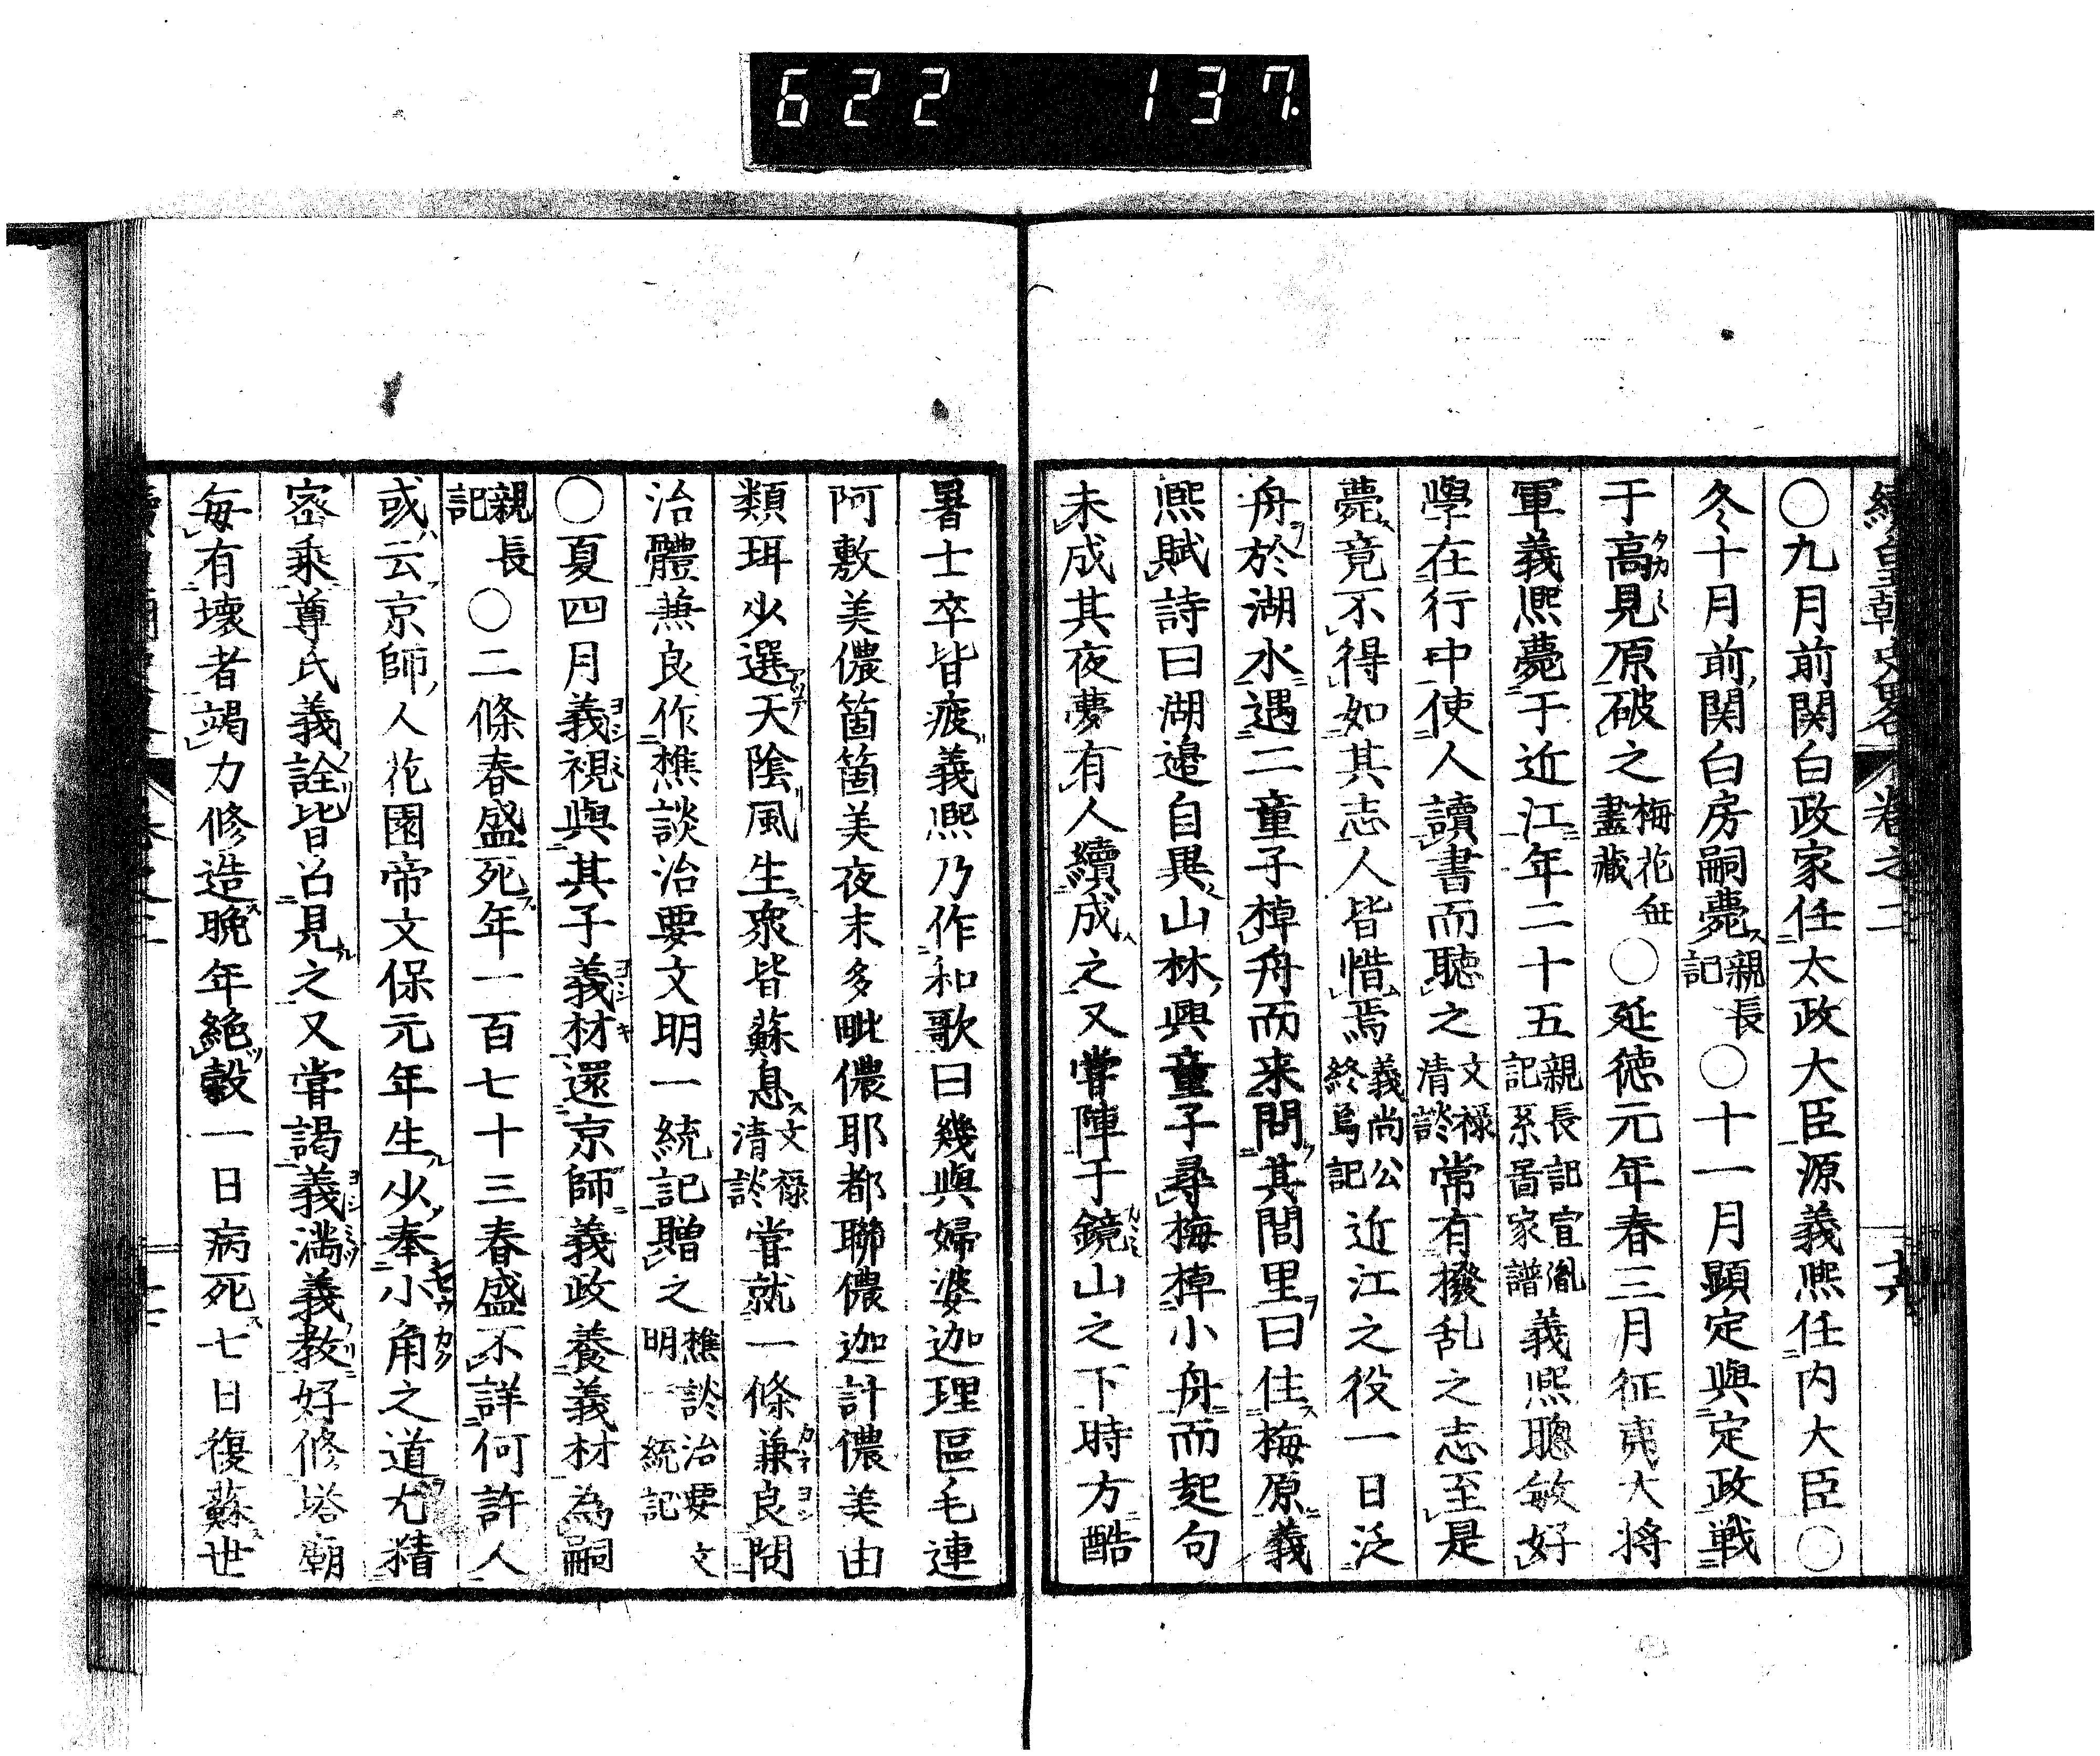 622 137
續皇朝史畧 卷之二 十六
○九月前関白政家任太政大臣源義熙任内大臣○
冬十月前関白房嗣薨親長記○十一月顕定與定政戦
于高見原破之梅花無盡藏○延徳元年春三月征夷大将
軍義熙薨于近江年二十五親長記宣胤記系啚家譜義熙聰敏好
學在行中使人讀書而聴之文禄清談常有撥乱之志至是
薨竟不得如其志人皆惜焉義尚公終焉記近江之役一日泛
舟於湖水遇二童子棹舟而来問其閭里曰住梅原義
熙賦詩曰湖邉自異山林興童子尋梅棹小舟而起句
未成其夜夢有人續成之又嘗陣于鏡山之下時方酷
暑士卒皆疲義熙乃作和歌曰幾與婦婆迦理區毛連
阿敷美儂箇箇美夜末多毗儂耶都聯儂迦計儂美由
類珥少選天隂風生衆皆蘇息文禄清談嘗就一條兼良問
治體兼良作樵談治要文明一統記贈之樵談治要文明一統記
○夏四月義視與其子義材還京師義政養義材為嗣
親長記○二條春盛死年一百七十三春盛不詳何許人
或云京師人花園帝文保元年生少奉小角之道尤精
宻乗尊氏義詮皆召見之又嘗謁義満義教好修塔廟
毎有壊者竭力修造晩年絶穀一日病死七日復蘇世